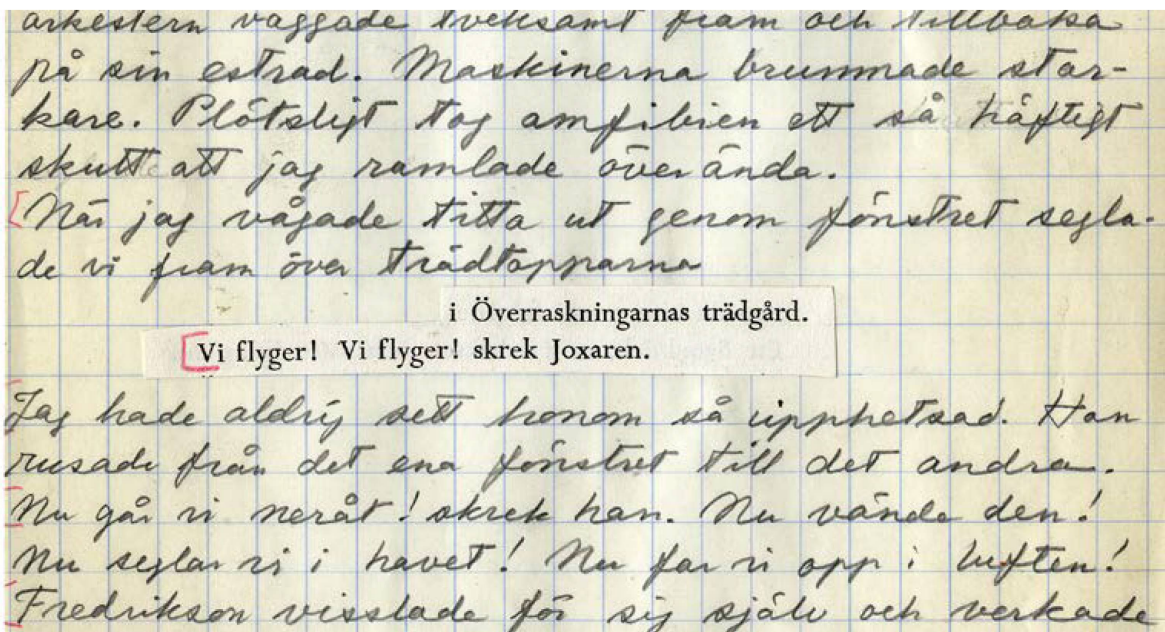 orkestern vaggade tveksamt fram och tillbaka
på sin estrad. Maskinerna brummade star-
kare. Plötsligt tog amfibien ett så häftigt
skutt att jag ramlade över ända.
När jag vågade titta ut genom fönstret segla-
de vi fram över trädtopparna
i Överraskningarnas trädgård.
Vi flyger! Vi flyger! skrek Joxaren.
Jag hade aldrig sett honom så upphetsad. Han
rusade från det ena fönstret till det andra.
Nu går vi neråt! skrek han. Nu vände den!
Nu seglar vi i havet! Nu far vi opp i luften!
Fredrikson visslade för sig själv och verkade